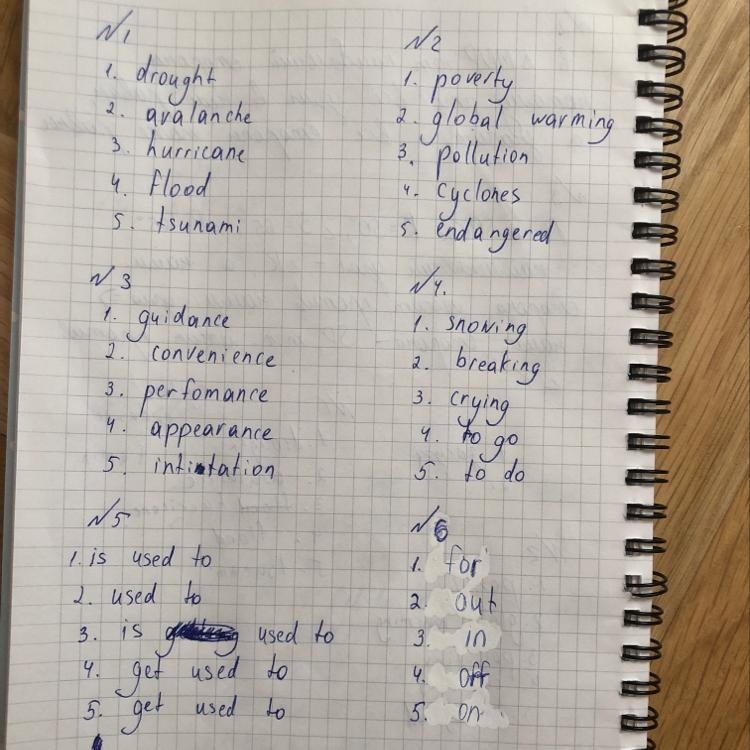 N1
1. drought
2. avalanche
3. hurricane
4. flood
5. tsunami
N2
1. poverty
2. global warming
3. pollution
4. cyclones
5. endangered
N3
1. guidance
2. convenience
3. perfomance
4. appearance
5.
N4.
1. snowing
2. breaking
3. crying
4. to go
5. to do
N5
1. is used to
2. used to
3. is used to
4. get used to
5. get used to
N6
1. for
2. out
3. in
4. off
5. on